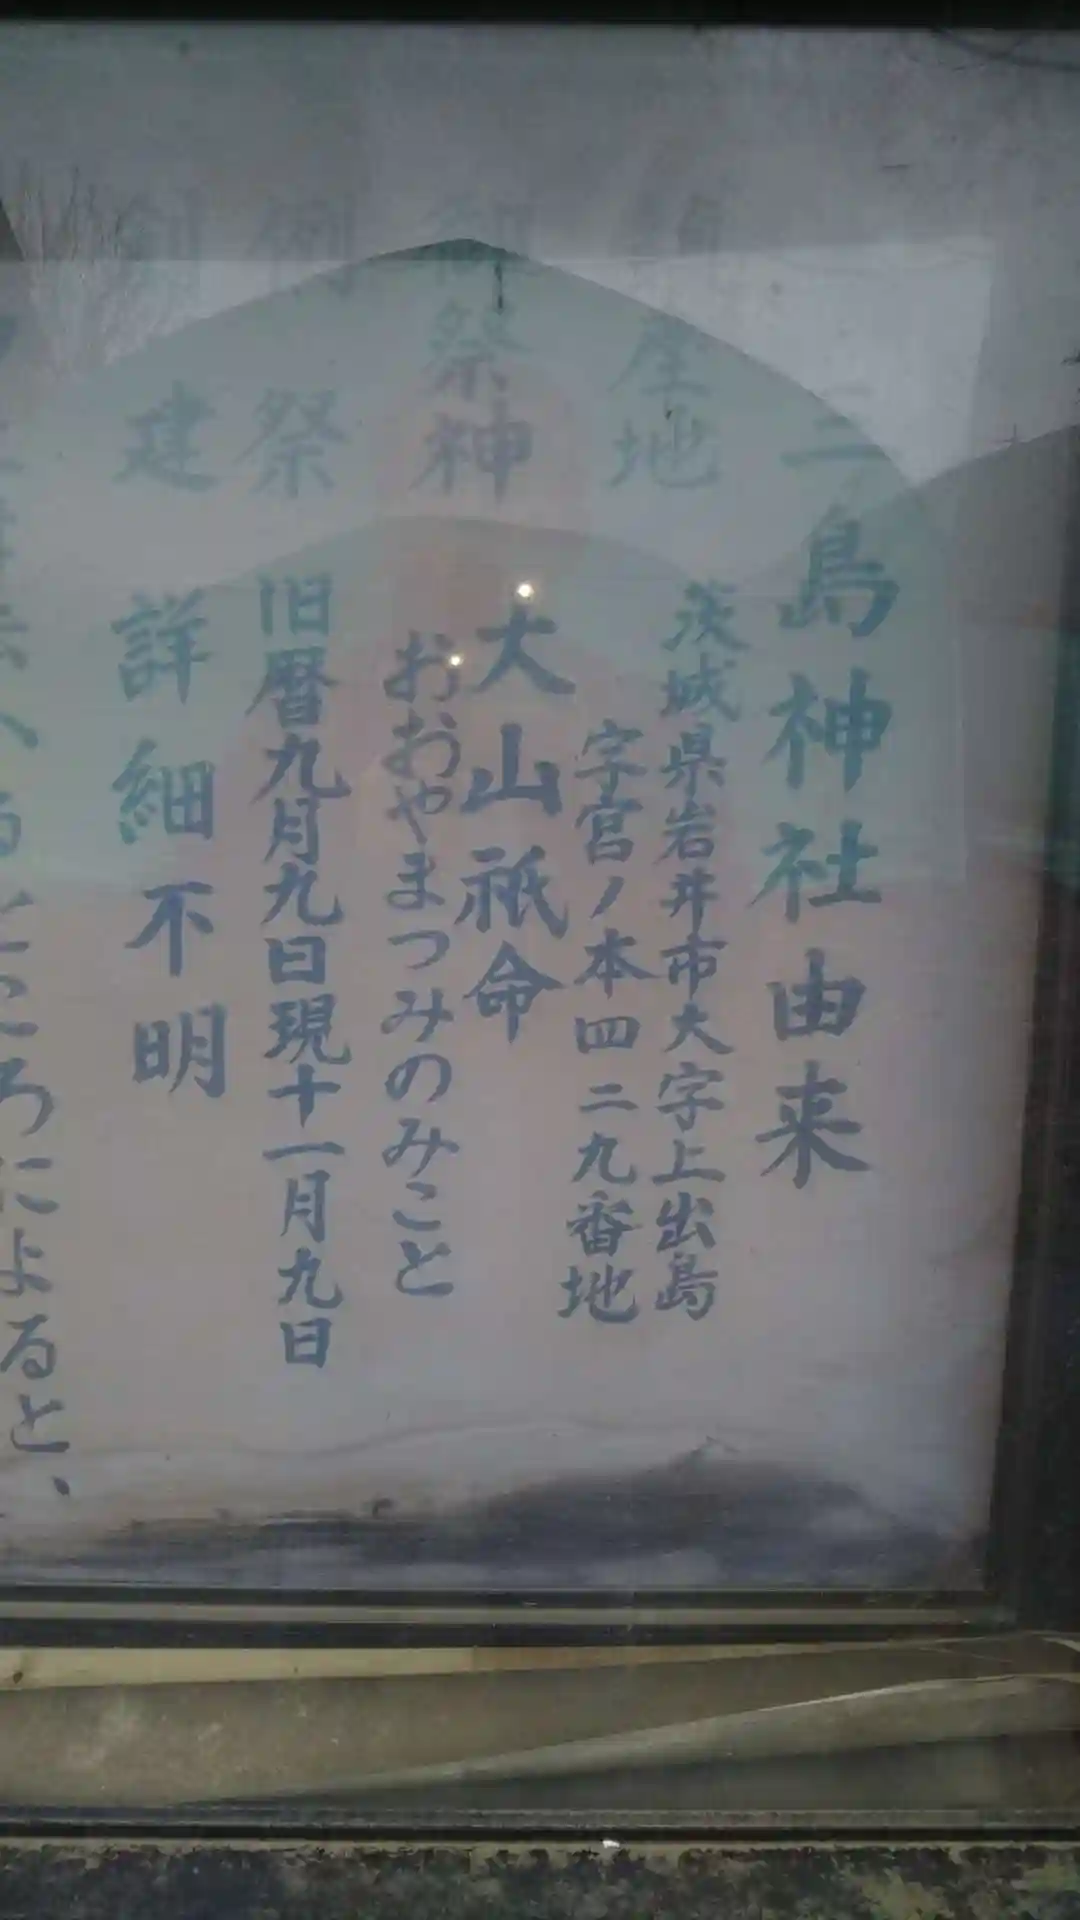 三島神社由来
鎮座地
茨城県岩井市大字上出島
字宮ノ本四二九番地
御祭神
大山祇命
おおやまつみのみこと
例祭
旧暦九月九日現十一月九日
創建
詳細不明
へるところによると、